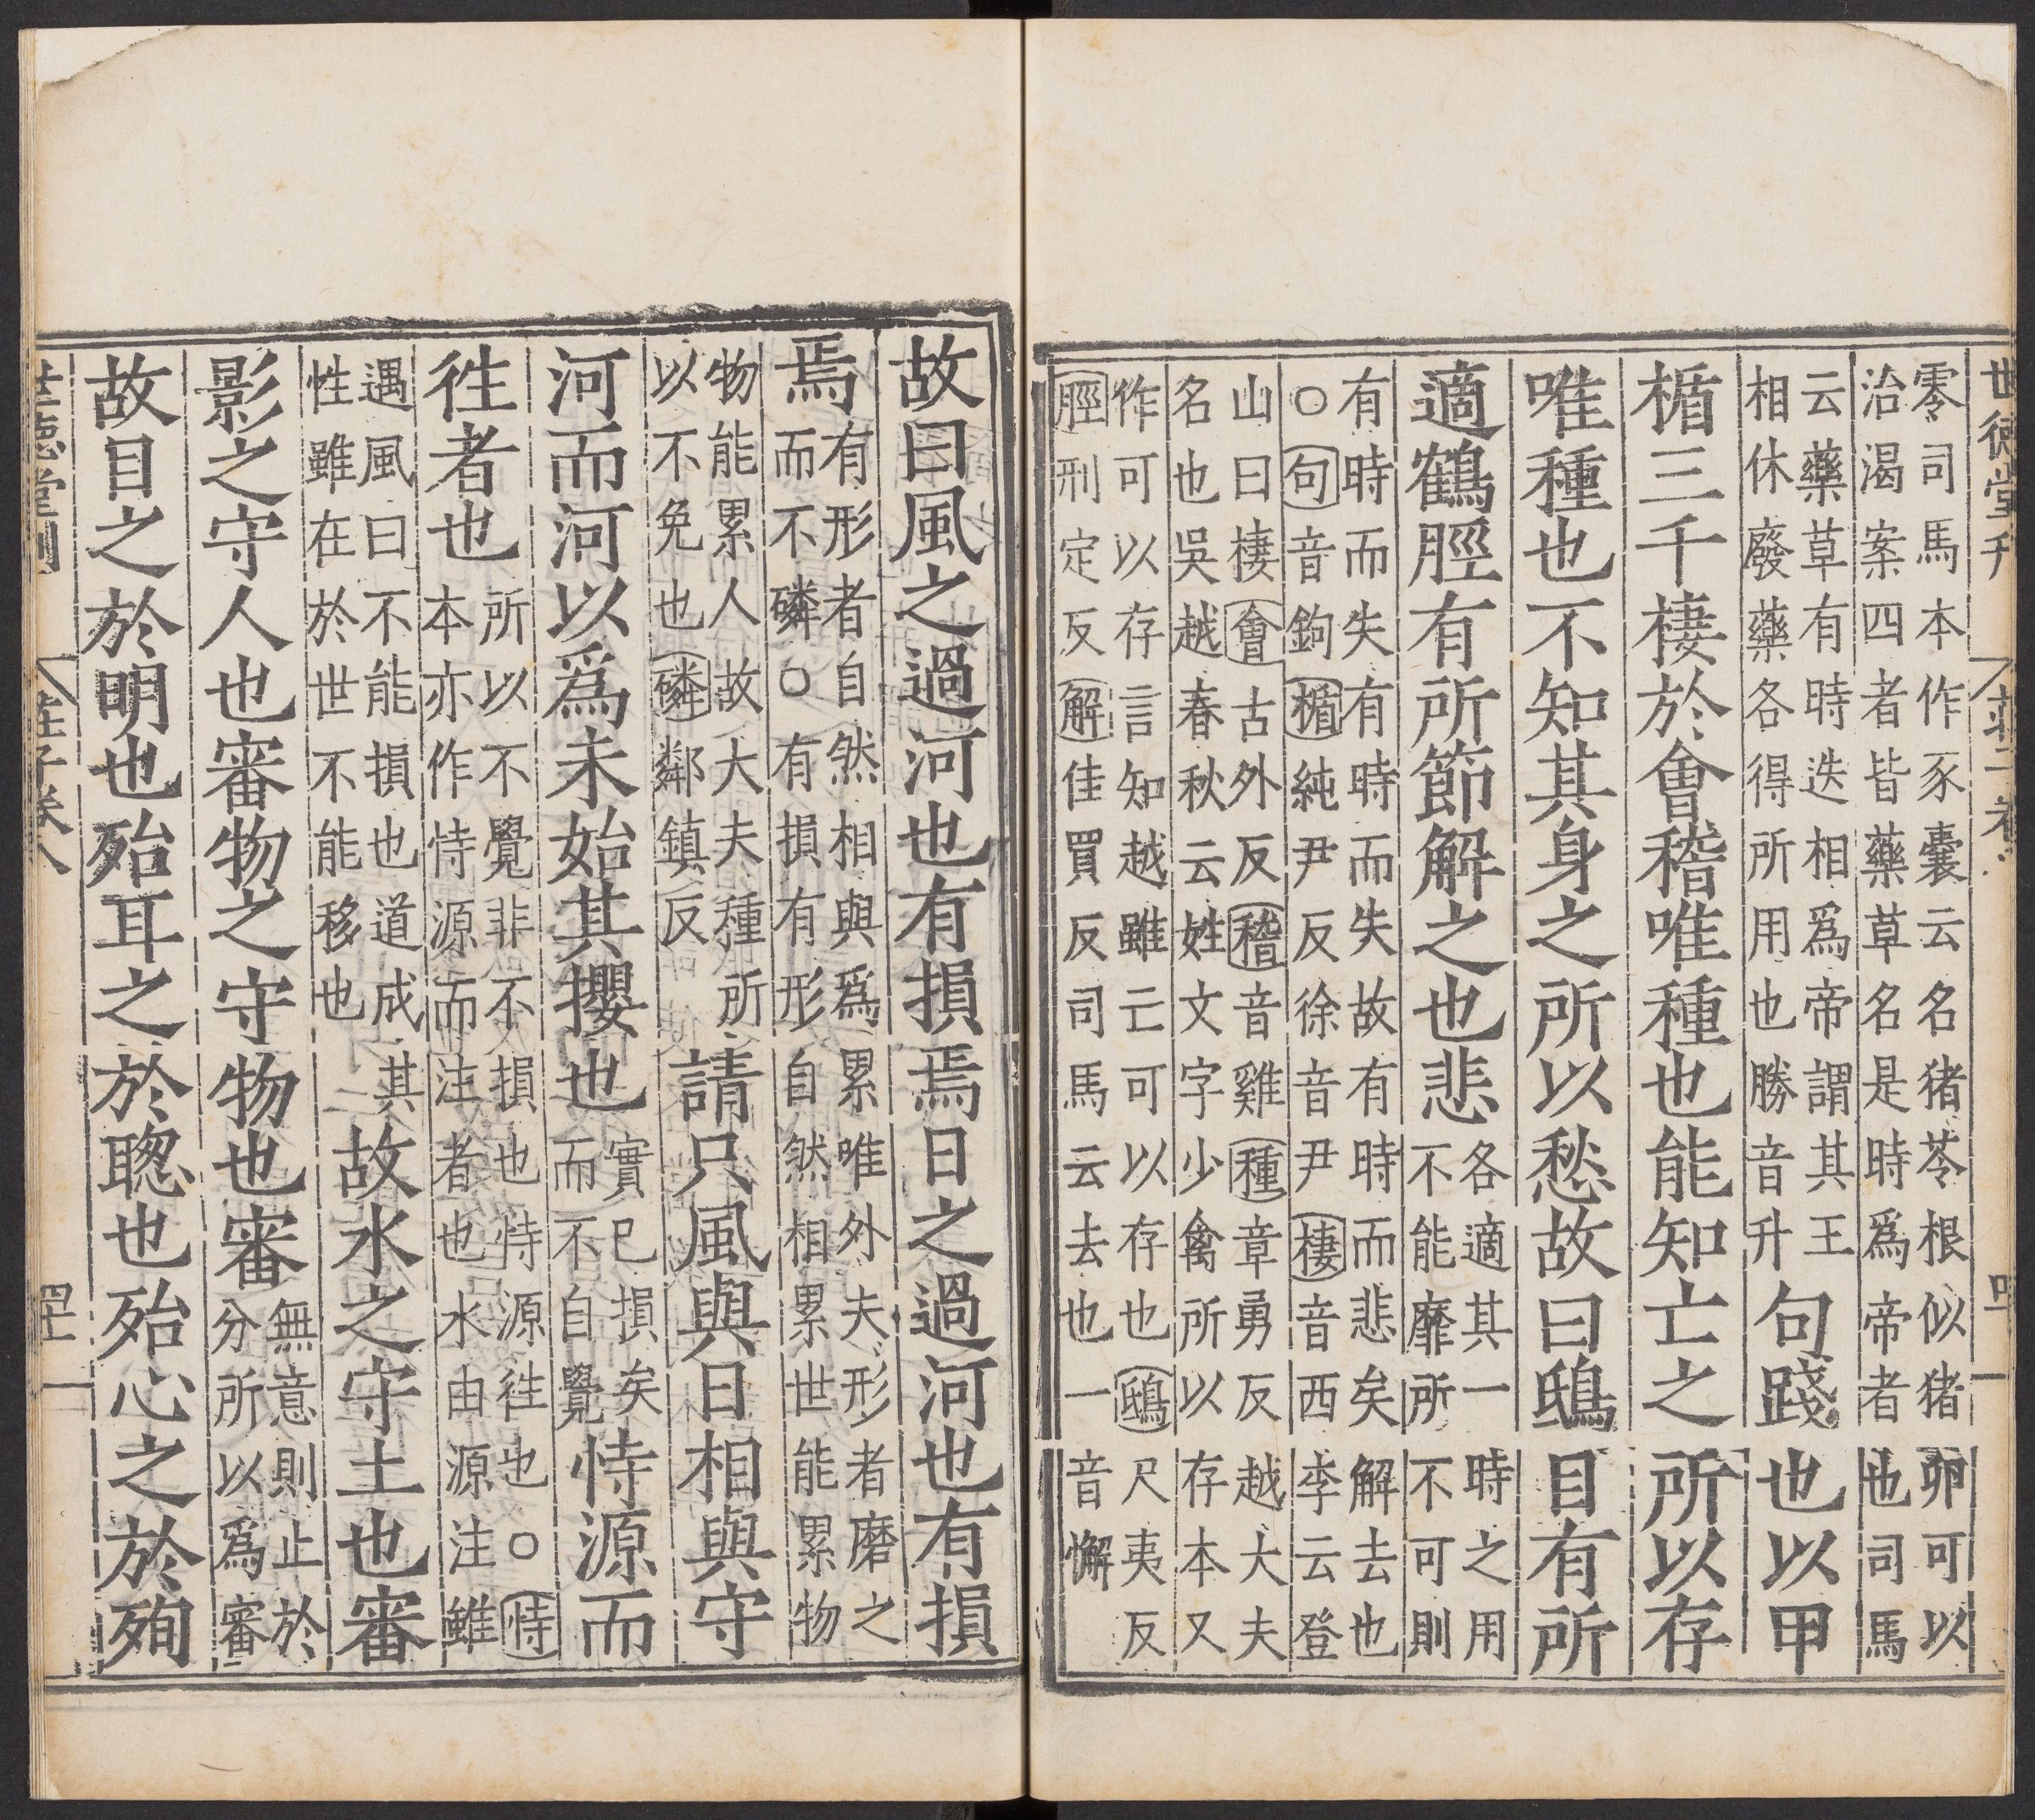 世德堂刊
零司馬本作豕囊云名猪苓根似猪卵可以
治渴案四者皆藥草名是時爲帝者也司馬
云藥草有時迭相爲帝謂其王
相休廢藥各得所用也勝音升
句踐也以甲
楯三千棲於會稽唯種也能知亡之所以存
唯種也不知其身之所以愁故曰鴟目有所
適鶴脛有所節解之也悲
各適其一時之用
不能靡所不可則
有時而失有時而失故有時而悲矣解去也
○句音鉤楯純尹反徐音尹棲音西李云登
山曰棲會古外反稽音雞種章勇反越大夫
名也吳越春秋云姓文字少禽所以存本又
作可以存言知越雖亡可以存也鴟尺夷反
脛刑定反解佳買反司馬云去也一音懈
故曰風之過河也有損焉日之過河也有損
焉
有形者自然相與爲累唯外夫形者磨之
而不磷○有損有形自然相累世能累物
物能累人故大夫種所
以不免也磷鄰鎮反
請只風與日相與守
河而河以爲未始其攖也
實已損矣
而不自覺
恃源而
徃者也
所以不覺非不損也恃源徃也○恃
本亦作恃源而注者也水由源注雖
遇風日不能損也道成其
性雖在於世不能移也
故水之守土也審
影之守人也審物之守物也審
無意則止於
分所以爲審
故目之於明也殆耳之於聰也殆心之於殉
世德堂刊
莊子卷八